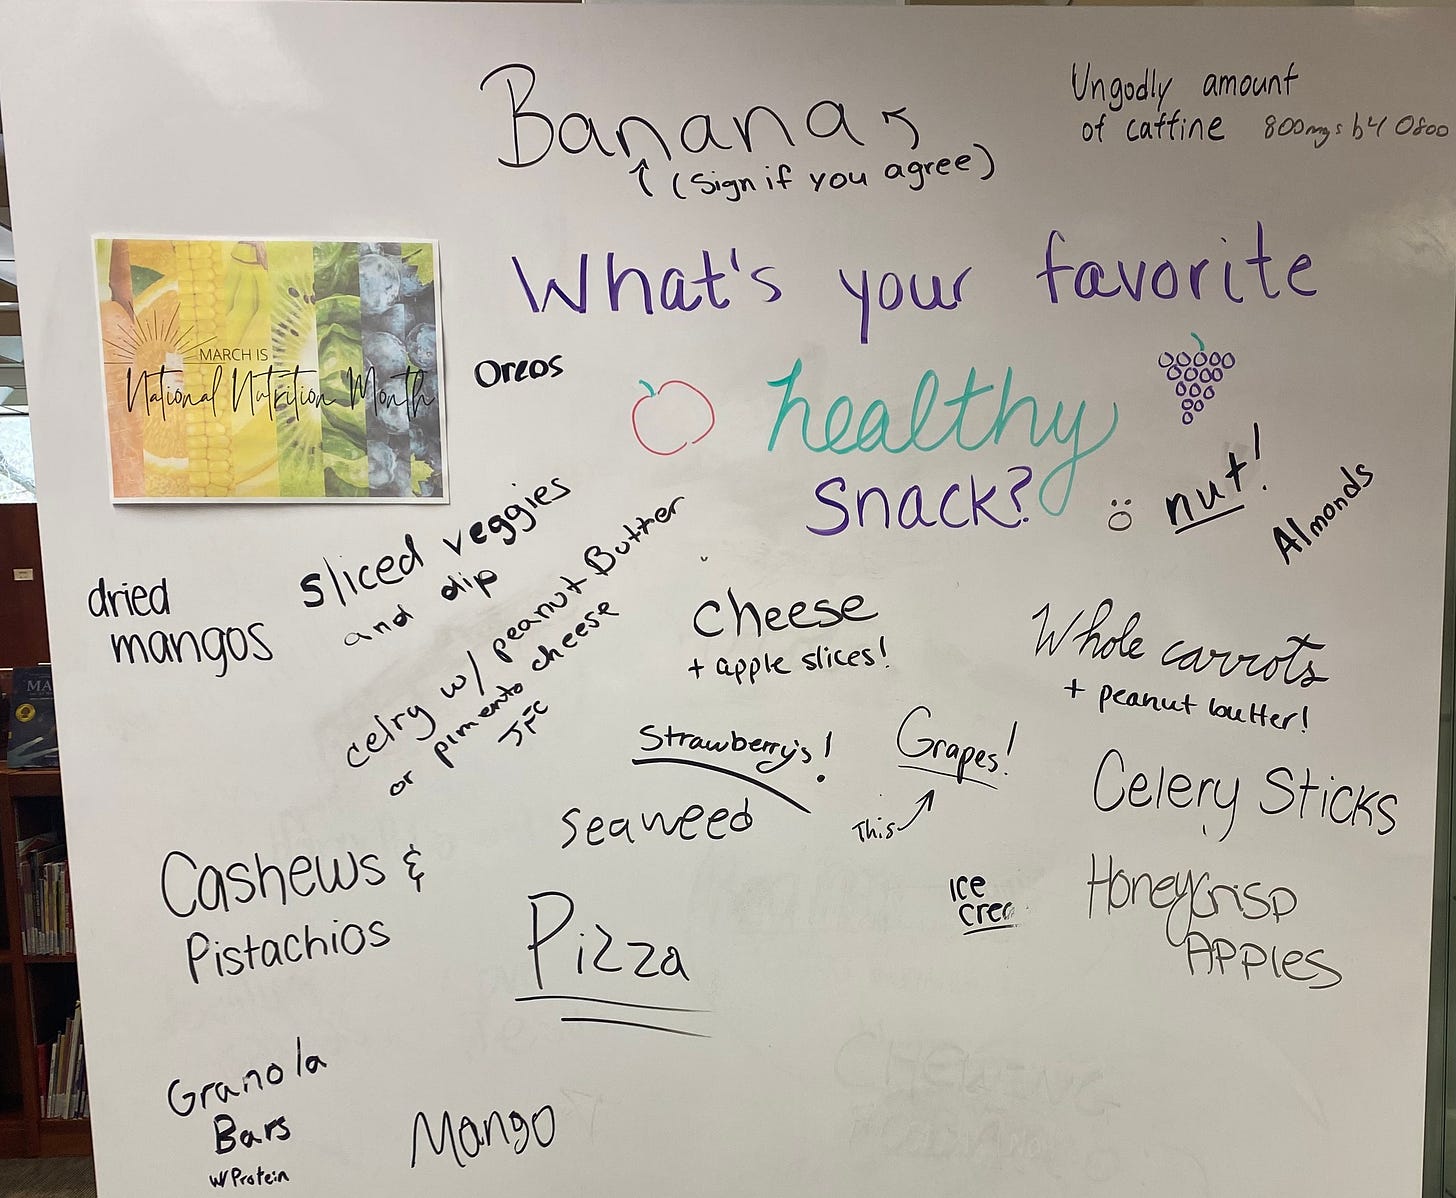 Banana
(Sign if you agree)
Ungodly amount
of caffine 800mgs b4 0800
What's your favorite
healthy
snack?
MARCH IS
National Nutrition Month
Oreos
nut!
Almonds
sliced veggies
and dip
dried
mangos
celry w/ peanut Butter
or pimento cheese
JFC
cheese
+ apple slices!
Whole carrots
+ peanut butter!
Strawberry's!
Grapes!
This
Celery Sticks
seaweed
Cashews &
Pistachios
Pizza
Ice
crea
HoneyCrisp
APPles
Granola
Bars
w/ Protein
Mango